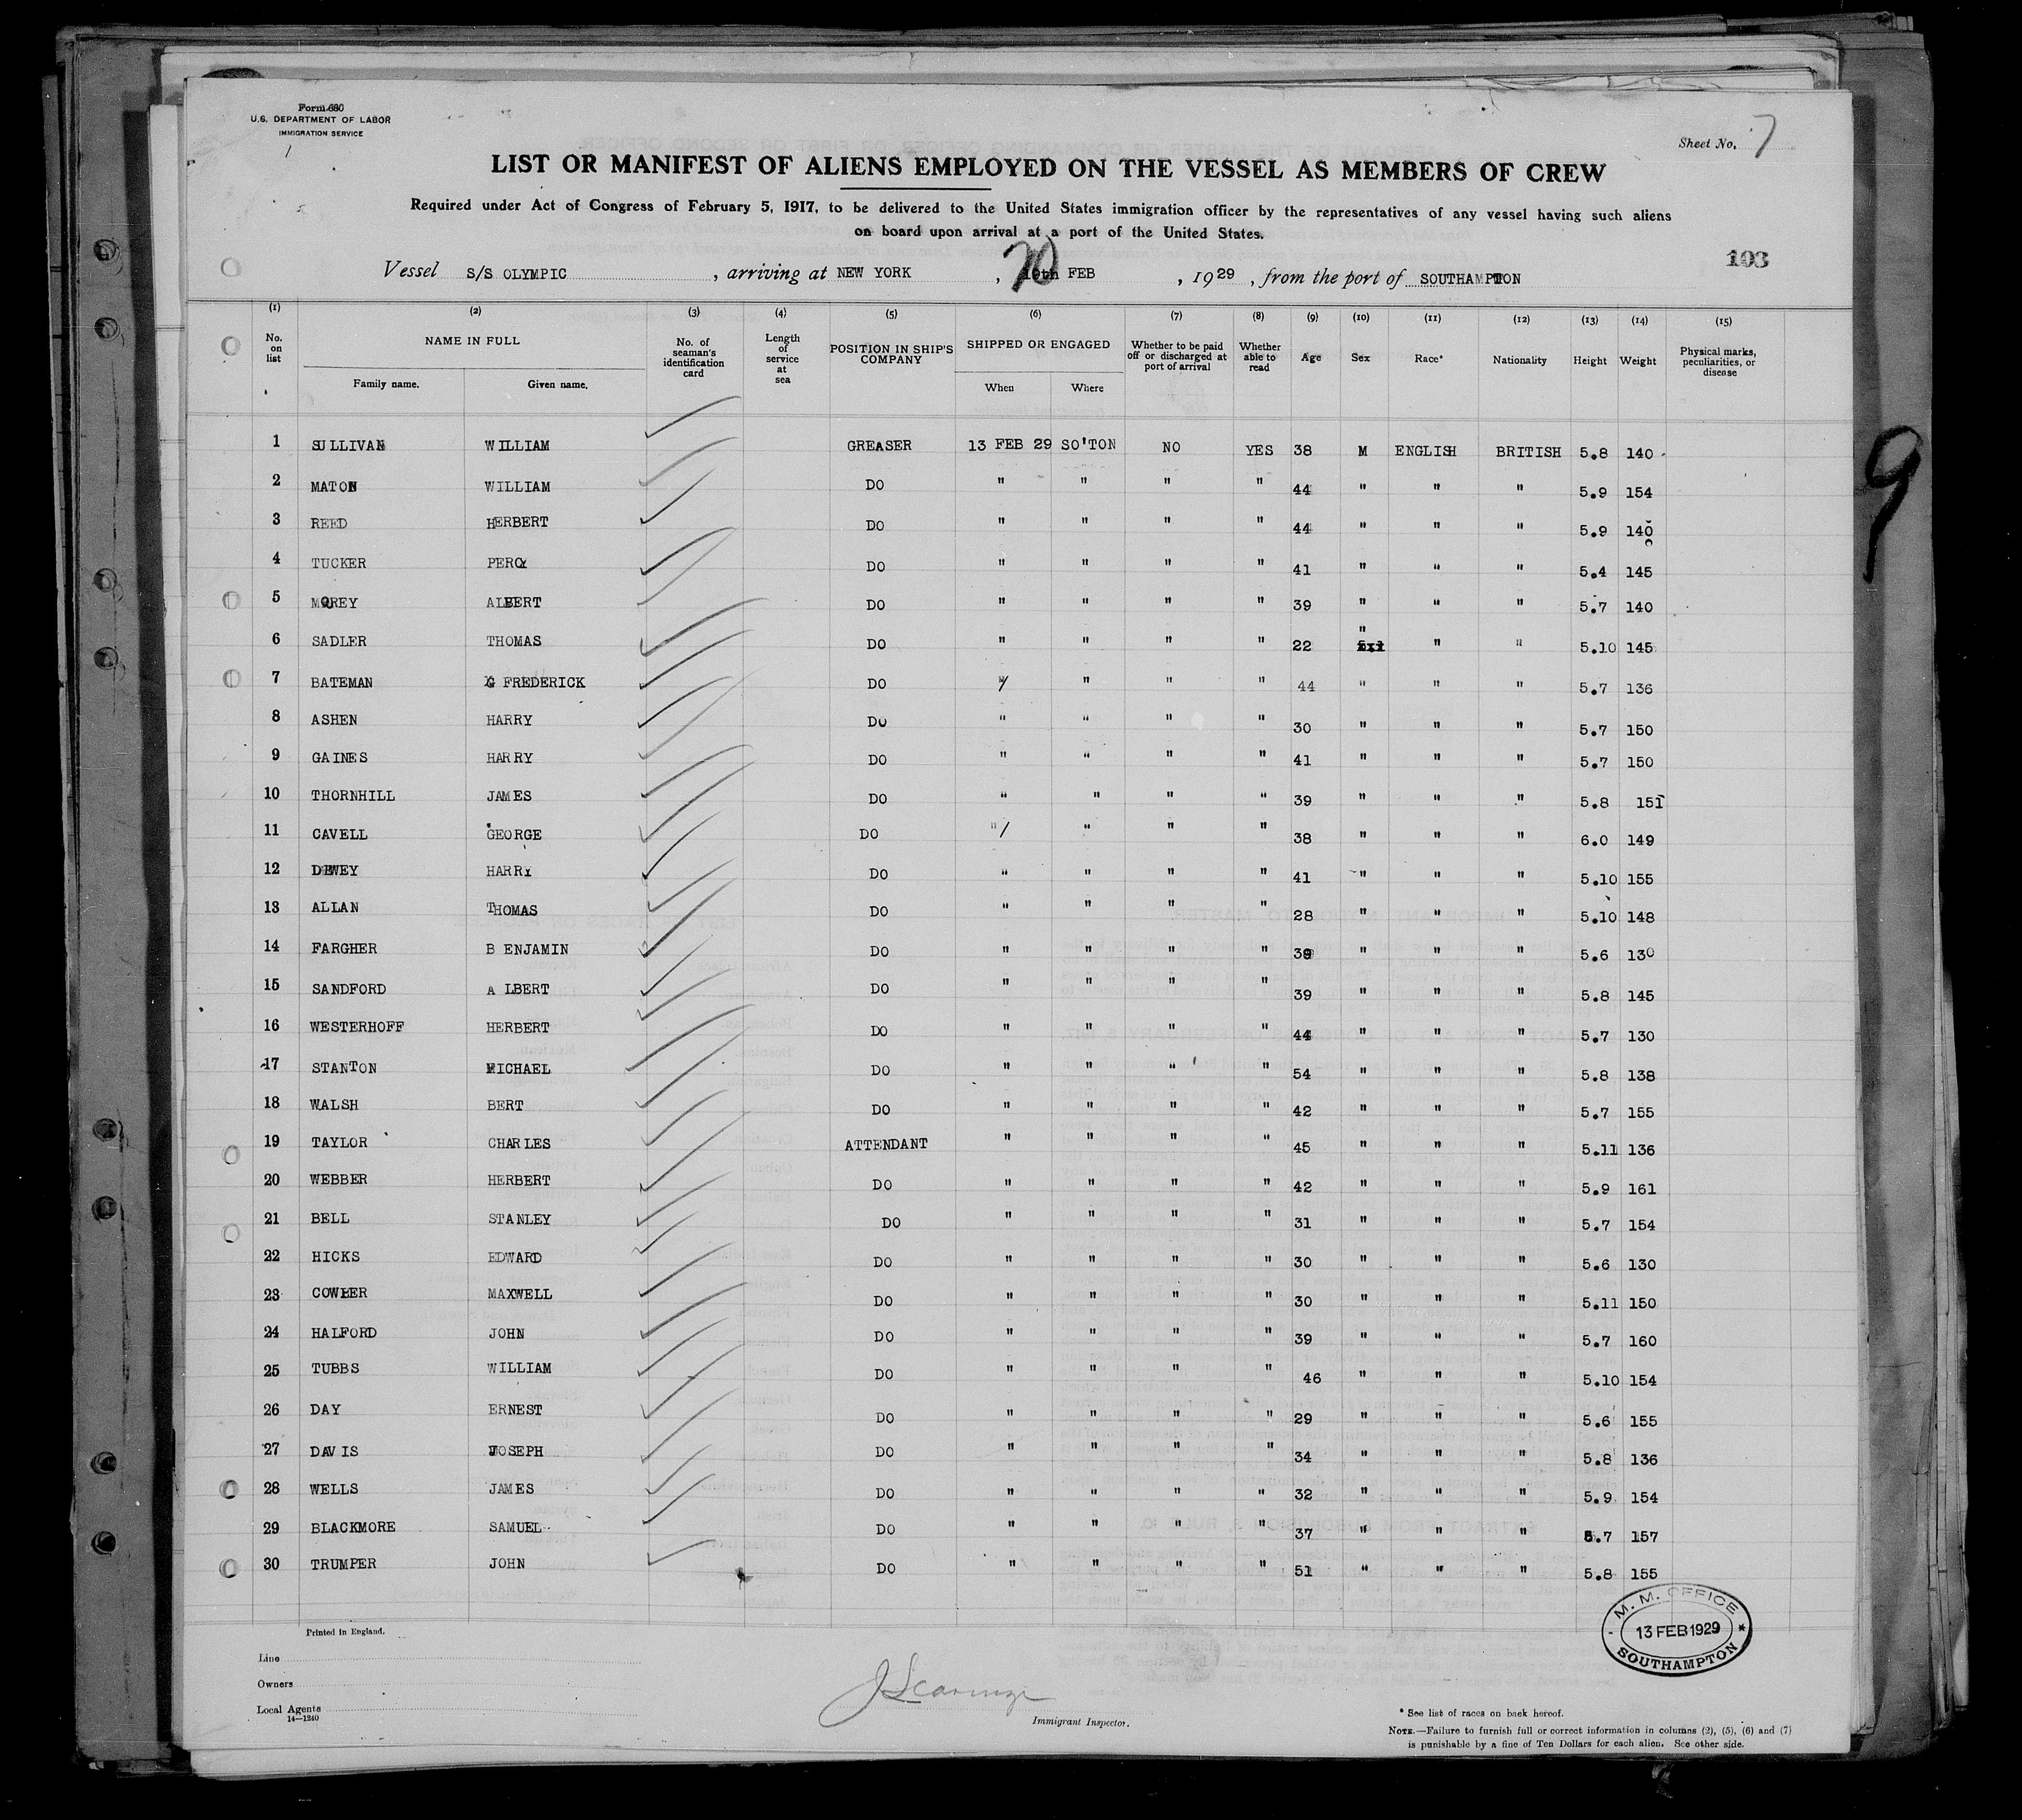 Form 680
U.S. DEPARTMENT OF LABOR
IMMIGRATION SERVICE
Sheet No. 7
LIST OR MANIFEST OF ALIENS EMPLOYED ON THE VESSEL AS MEMBERS OF CREW
Required under Act of Congress of February 5, 1917, to be delivered to the United States immigration officer by the representatives of any vessel having such aliens
on board upon arrival at a port of the United States.
103
Vessel S/S OLYMPIC , arriving at NEW YORK , 20 FEB , 1929 , from the port of SOUTHAMPTON
(1) (2) (3) (4) (5) (6) (7) (8) (9) (10) (11) (12) (13) (14) (15)
No. on list NAME IN FULL Family name. Given name. No. of seaman's identification card Length of service at sea POSITION IN SHIP'S COMPANY SHIPPED OR ENGAGED When Where Whether to be paid off or discharged at port of arrival Whether able to read Age Sex Race* Nationality Height Weight Physical marks, peculiarities, or disease
1 SULLIVAN WILLIAM GREASER 13 FEB 29 SO'TON NO YES 38 M ENGLISH BRITISH 5.8 140
2 MATON WILLIAM DO " " " " 44 " " " 5.9 154
3 REED HERBERT DO " " " " 44 " " " 5.9 140
4 TUCKER PERCY DO " " " " 41 " " " 5.4 145
5 MOREY ALBERT DO " " " " 39 " " " 5.7 140
6 SADLER THOMAS DO " " " " 22 " " " 5.10 145
7 BATEMAN G FREDERICK DO " " " " 44 " " " 5.7 136
8 ASHEN HARRY DO " " " " 30 " " " 5.7 150
9 GAINES HARRY DO " " " " 41 " " " 5.7 150
10 THORNHILL JAMES DO " " " " 39 " " " 5.8 151
11 CAVELL GEORGE DO " " " " 38 " " " 6.0 149
12 DEWEY HARRY DO " " " " 41 " " " 5.10 155
13 ALLAN THOMAS DO " " " " 28 " " " 5.10 148
14 FARGHER BENJAMIN DO " " " " 39 " " " 5.6 130
15 SANDFORD ALBERT DO " " " " 39 " " " 5.8 145
16 WESTERHOFF HERBERT DO " " " " 44 " " " 5.7 130
17 STANTON MICHAEL DO " " " " 54 " " " 5.8 138
18 WALSH BERT DO " " " " 42 " " " 5.7 155
19 TAYLOR CHARLES ATTENDANT " " " " 45 " " " 5.11 136
20 WEBBER HERBERT DO " " " " 42 " " " 5.9 161
21 BELL STANLEY DO " " " " 31 " " " 5.7 154
22 HICKS EDWARD DO " " " " 30 " " " 5.6 130
23 COWLER MAXWELL DO " " " " 30 " " " 5.11 150
24 HALFORD JOHN DO " " " " 39 " " " 5.7 160
25 TUBBS WILLIAM DO " " " " 46 " " " 5.10 154
26 DAY ERNEST DO " " " " 29 " " " 5.6 155
27 DAVIS JOSEPH DO " " " " 34 " " " 5.8 136
28 WELLS JAMES DO " " " " 32 " " " 5.9 154
29 BLACKMORE SAMUEL DO " " " " 37 " " " 5.7 157
30 TRUMPER JOHN DO " " " " 51 " " " 5.8 155
9
M. M. OFFICE
13 FEB 1929
SOUTHAMPTON
Printed in England.
Line
Owners
Local Agents
14—1240
Immigrant Inspector.
* See list of races on back hereof.
NOTE.—Failure to furnish full or correct information in columns (2), (5), (6) and (7)
is punishable by a fine of Ten Dollars for each alien. See other side.